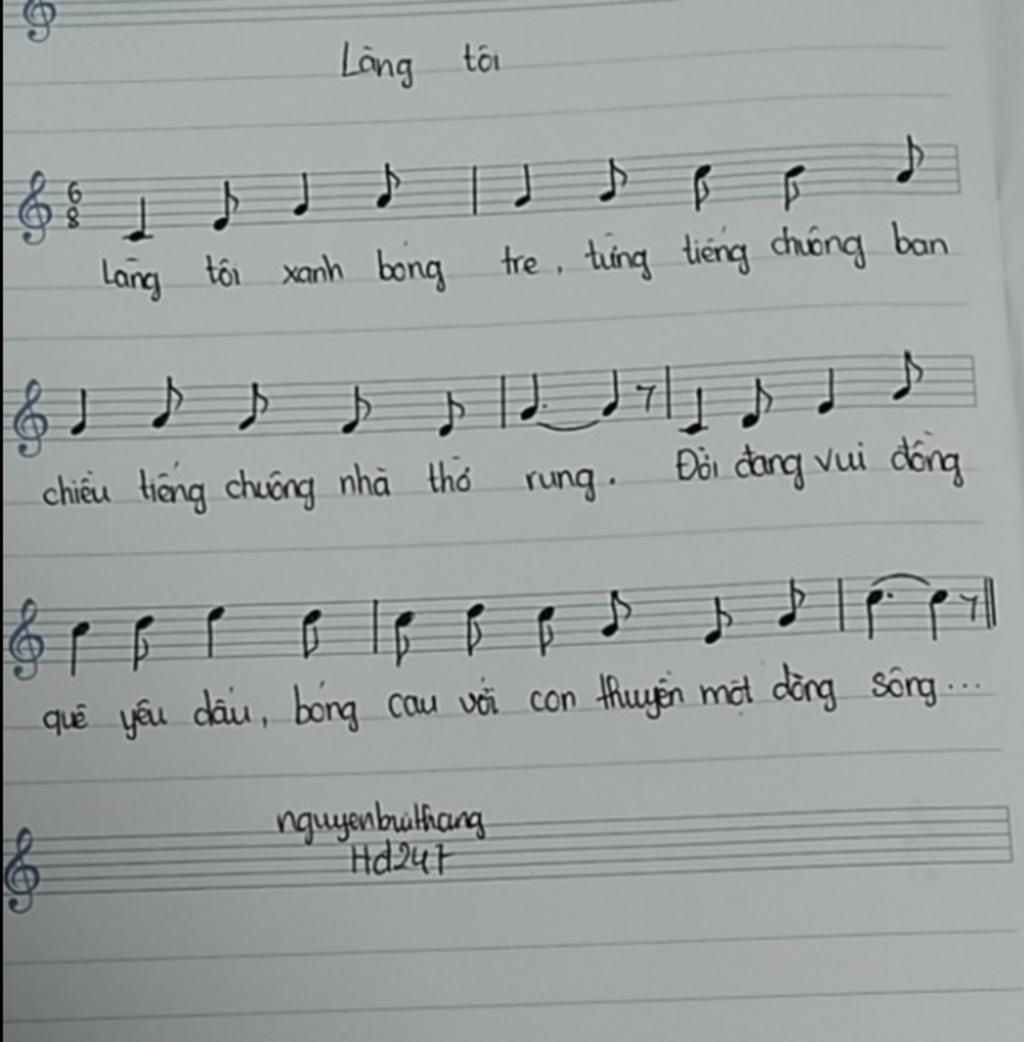 Làng tôi
6
8
Làng tôi xanh bóng tre, từng tiếng chuông ban
chiều tiếng chuông nhà thờ rung. Đời đang vui đồng
quê yêu dấu, bóng cau với con thuyền một dòng sông...
Hd247